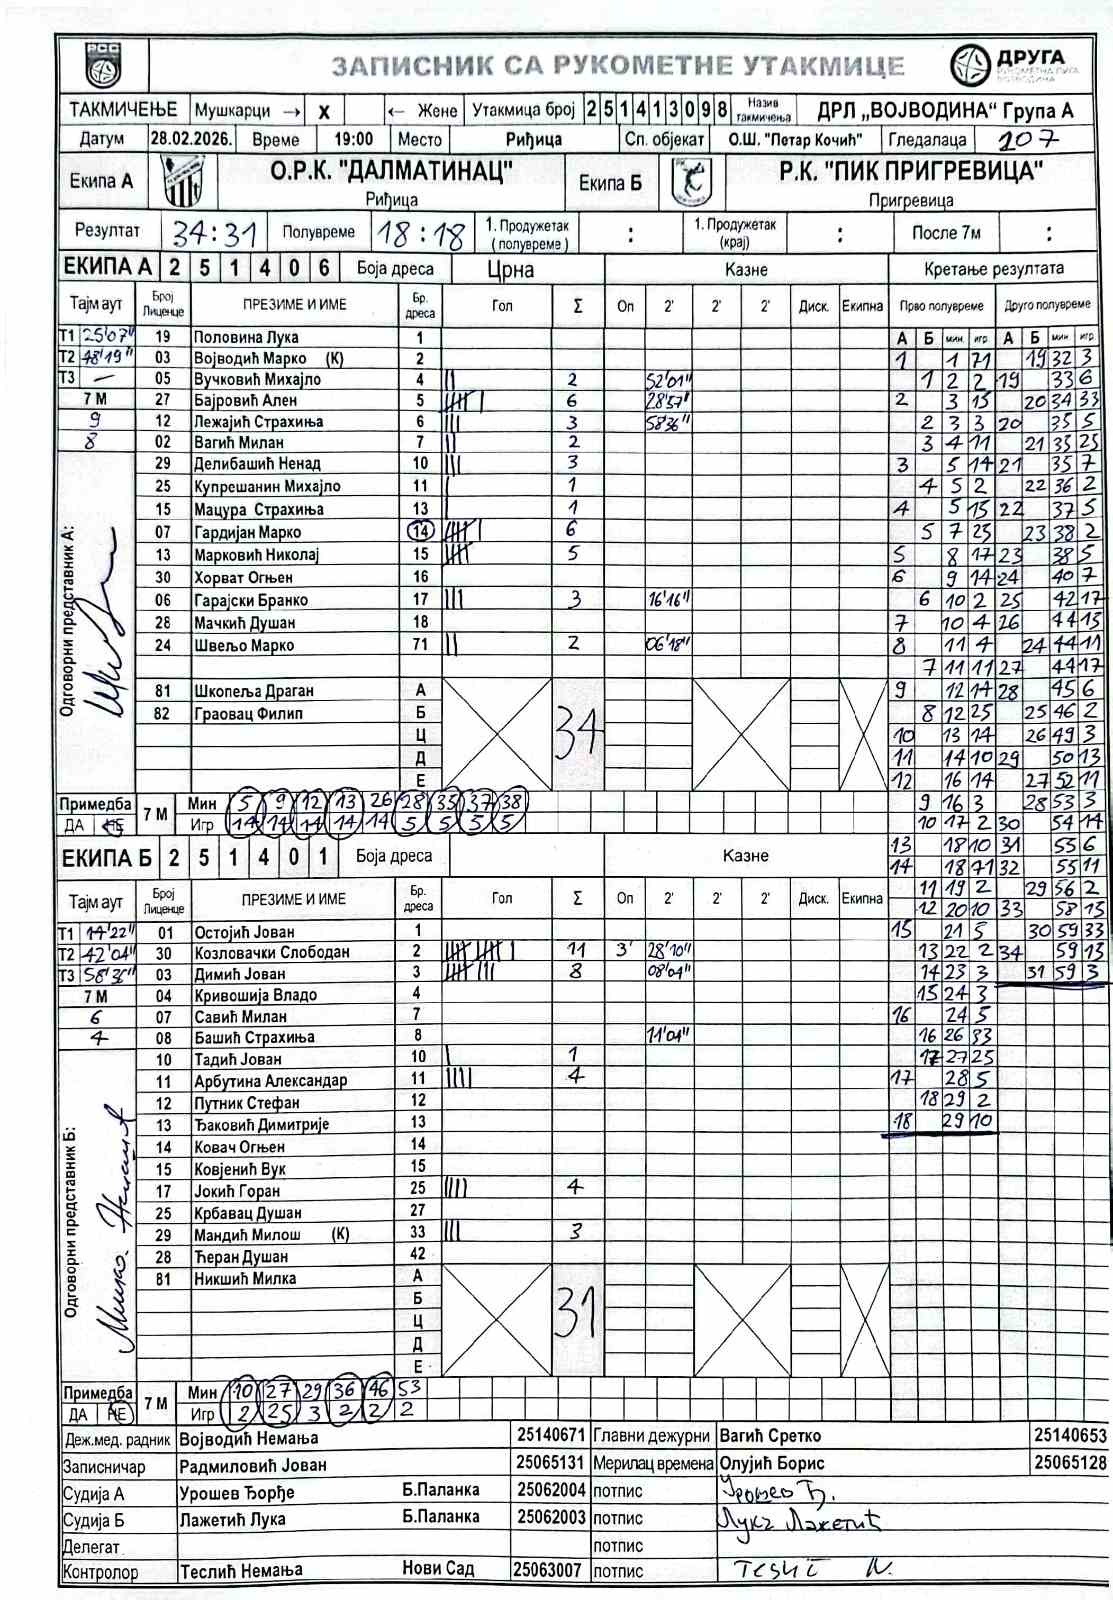 РСС
ЗАПИСНИК СА РУКОМЕТНЕ УТАКМИЦЕ
ДРУГА
РУКОМЕТНА ЛИГА
ВОЈВОДИНА
ТАКМИЧЕЊЕ Мушкарци → X ← Жене Утакмица број 2 5 1 4 1 3 0 9 8 Назив такмичења ДРЛ „ВОЈВОДИНА“ Група А
Датум 28.02.2026. Време 19:00 Место Риђица Сп. објекат О.Ш. "Петар Кочић" Гледалаца 207
Екипа А О.Р.К. "ДАЛМАТИНАЦ" Риђица Екипа Б Р.К. "ПИК ПРИГРЕВИЦА" Пригревица
Резултат 34:31 Полувреме 18:18 1. Продужетак (полувреме) : 1. Продужетак (крај) : После 7м :
ЕКИПА А 2 5 1 4 0 6 Боја дреса Црна Казне Кретање резултата
Тајм аут Број Лиценце ПРЕЗИМЕ И ИМЕ Бр. дреса Гол Σ Оп 2' 2' 2' Диск. Екипна Прво полувреме Друго полувреме
А Б мин. игр. А Б мин игр.
Т1 25'07" 19 Половина Лука 1 1 1 71 19 32 3
Т2 48'19" 03 Војводић Марко (К) 2 1 2 2 19 33 6
Т3 — 05 Вучковић Михајло 4 || 2 52'01" 2 3 15 20 34 33
7 М 27 Бајровић Ален 5 6 28'57" 2 3 3 20 35 5
9 12 Лежајић Страхиња 6 ||| 3 58'36" 3 4 11 21 35 25
8 02 Вагић Милан 7 || 2 3 5 14 21 35 7
29 Делибашић Ненад 10 ||| 3 4 5 2 22 36 2
25 Купрешанин Михајло 11 | 1 4 5 15 22 37 5
15 Мацура Страхиња 13 | 1 5 7 25 23 38 2
07 Гардијан Марко 14 6 5 8 17 23 38 5
13 Марковић Николај 15 5 6 9 14 24 40 7
30 Хорват Огњен 16 6 10 2 25 42 17
06 Гарајски Бранко 17 ||| 3 16'16" 7 10 4 26 44 13
28 Мачкић Душан 18 8 11 4 24 44 11
24 Швељо Марко 71 || 2 06'18" 7 11 11 27 44 17
Одговорни представник А:
81 Шкопеља Драган А 34 9 12 14 28 45 6
82 Граовац Филип Б 8 12 25 25 46 2
Ц 10 13 14 26 49 3
Д 11 14 10 29 50 13
Е 12 16 14 27 52 11
Примедба ДА НЕ 7 М Мин 5 9 12 13 26 28 35 37 38 9 16 3 28 53 3
Игр 14 14 14 14 14 5 5 5 5 10 17 2 30 54 14
ЕКИПА Б 2 5 1 4 0 1 Боја дреса Казне 13 18 10 31 55 6
14 18 71 32 55 11
Тајм аут Број Лиценце ПРЕЗИМЕ И ИМЕ Бр. дреса Гол Σ Оп 2' 2' 2' Диск. Екипна 11 19 2 29 56 2
12 20 10 33 58 15
Т1 14'22" 01 Остојић Јован 1 15 21 5 30 59 33
Т2 42'04" 30 Козловачки Слободан 2 11 3' 28'10" 13 22 2 34 59 13
Т3 58'36" 03 Димић Јован 3 8 08'04" 14 23 3 31 59 3
7 М 04 Кривошија Владо 4 15 24 3
6 07 Савић Милан 7 16 24 5
4 08 Башић Страхиња 8 11'04" 16 26 33
10 Тадић Јован 10 | 1 17 27 25
11 Арбутина Александар 11 |||| 4 17 28 5
12 Путник Стефан 12 18 29 2
13 Ђаковић Димитрије 13 18 29 10
14 Ковач Огњен 14
15 Ковјенић Вук 15
17 Јокић Горан 25 |||| 4
25 Крбавац Душан 27
29 Мандић Милош (К) 33 ||| 3
28 Ћеран Душан 42
Одговорни представник Б:
81 Никшић Милка А 31
Б
Ц
Д
Е
Примедба ДА НЕ 7 М Мин 10 27 29 36 46 53
Игр 2 25 3 2 2 2
Деж.мед. радник Војводић Немања 25140671 Главни дежурни Вагић Сретко 25140653
Записничар Радмиловић Јован 25065131 Мерилац времена Олујић Борис 25065128
Судија А Урошев Ђорђе Б.Паланка 25062004 потпис Урошев Ђ.
Судија Б Лажетић Лука Б.Паланка 25062003 потпис Лука Лажетић
Делегат потпис
Контролор Теслић Немања Нови Сад 25063007 потпис Теслић Н.